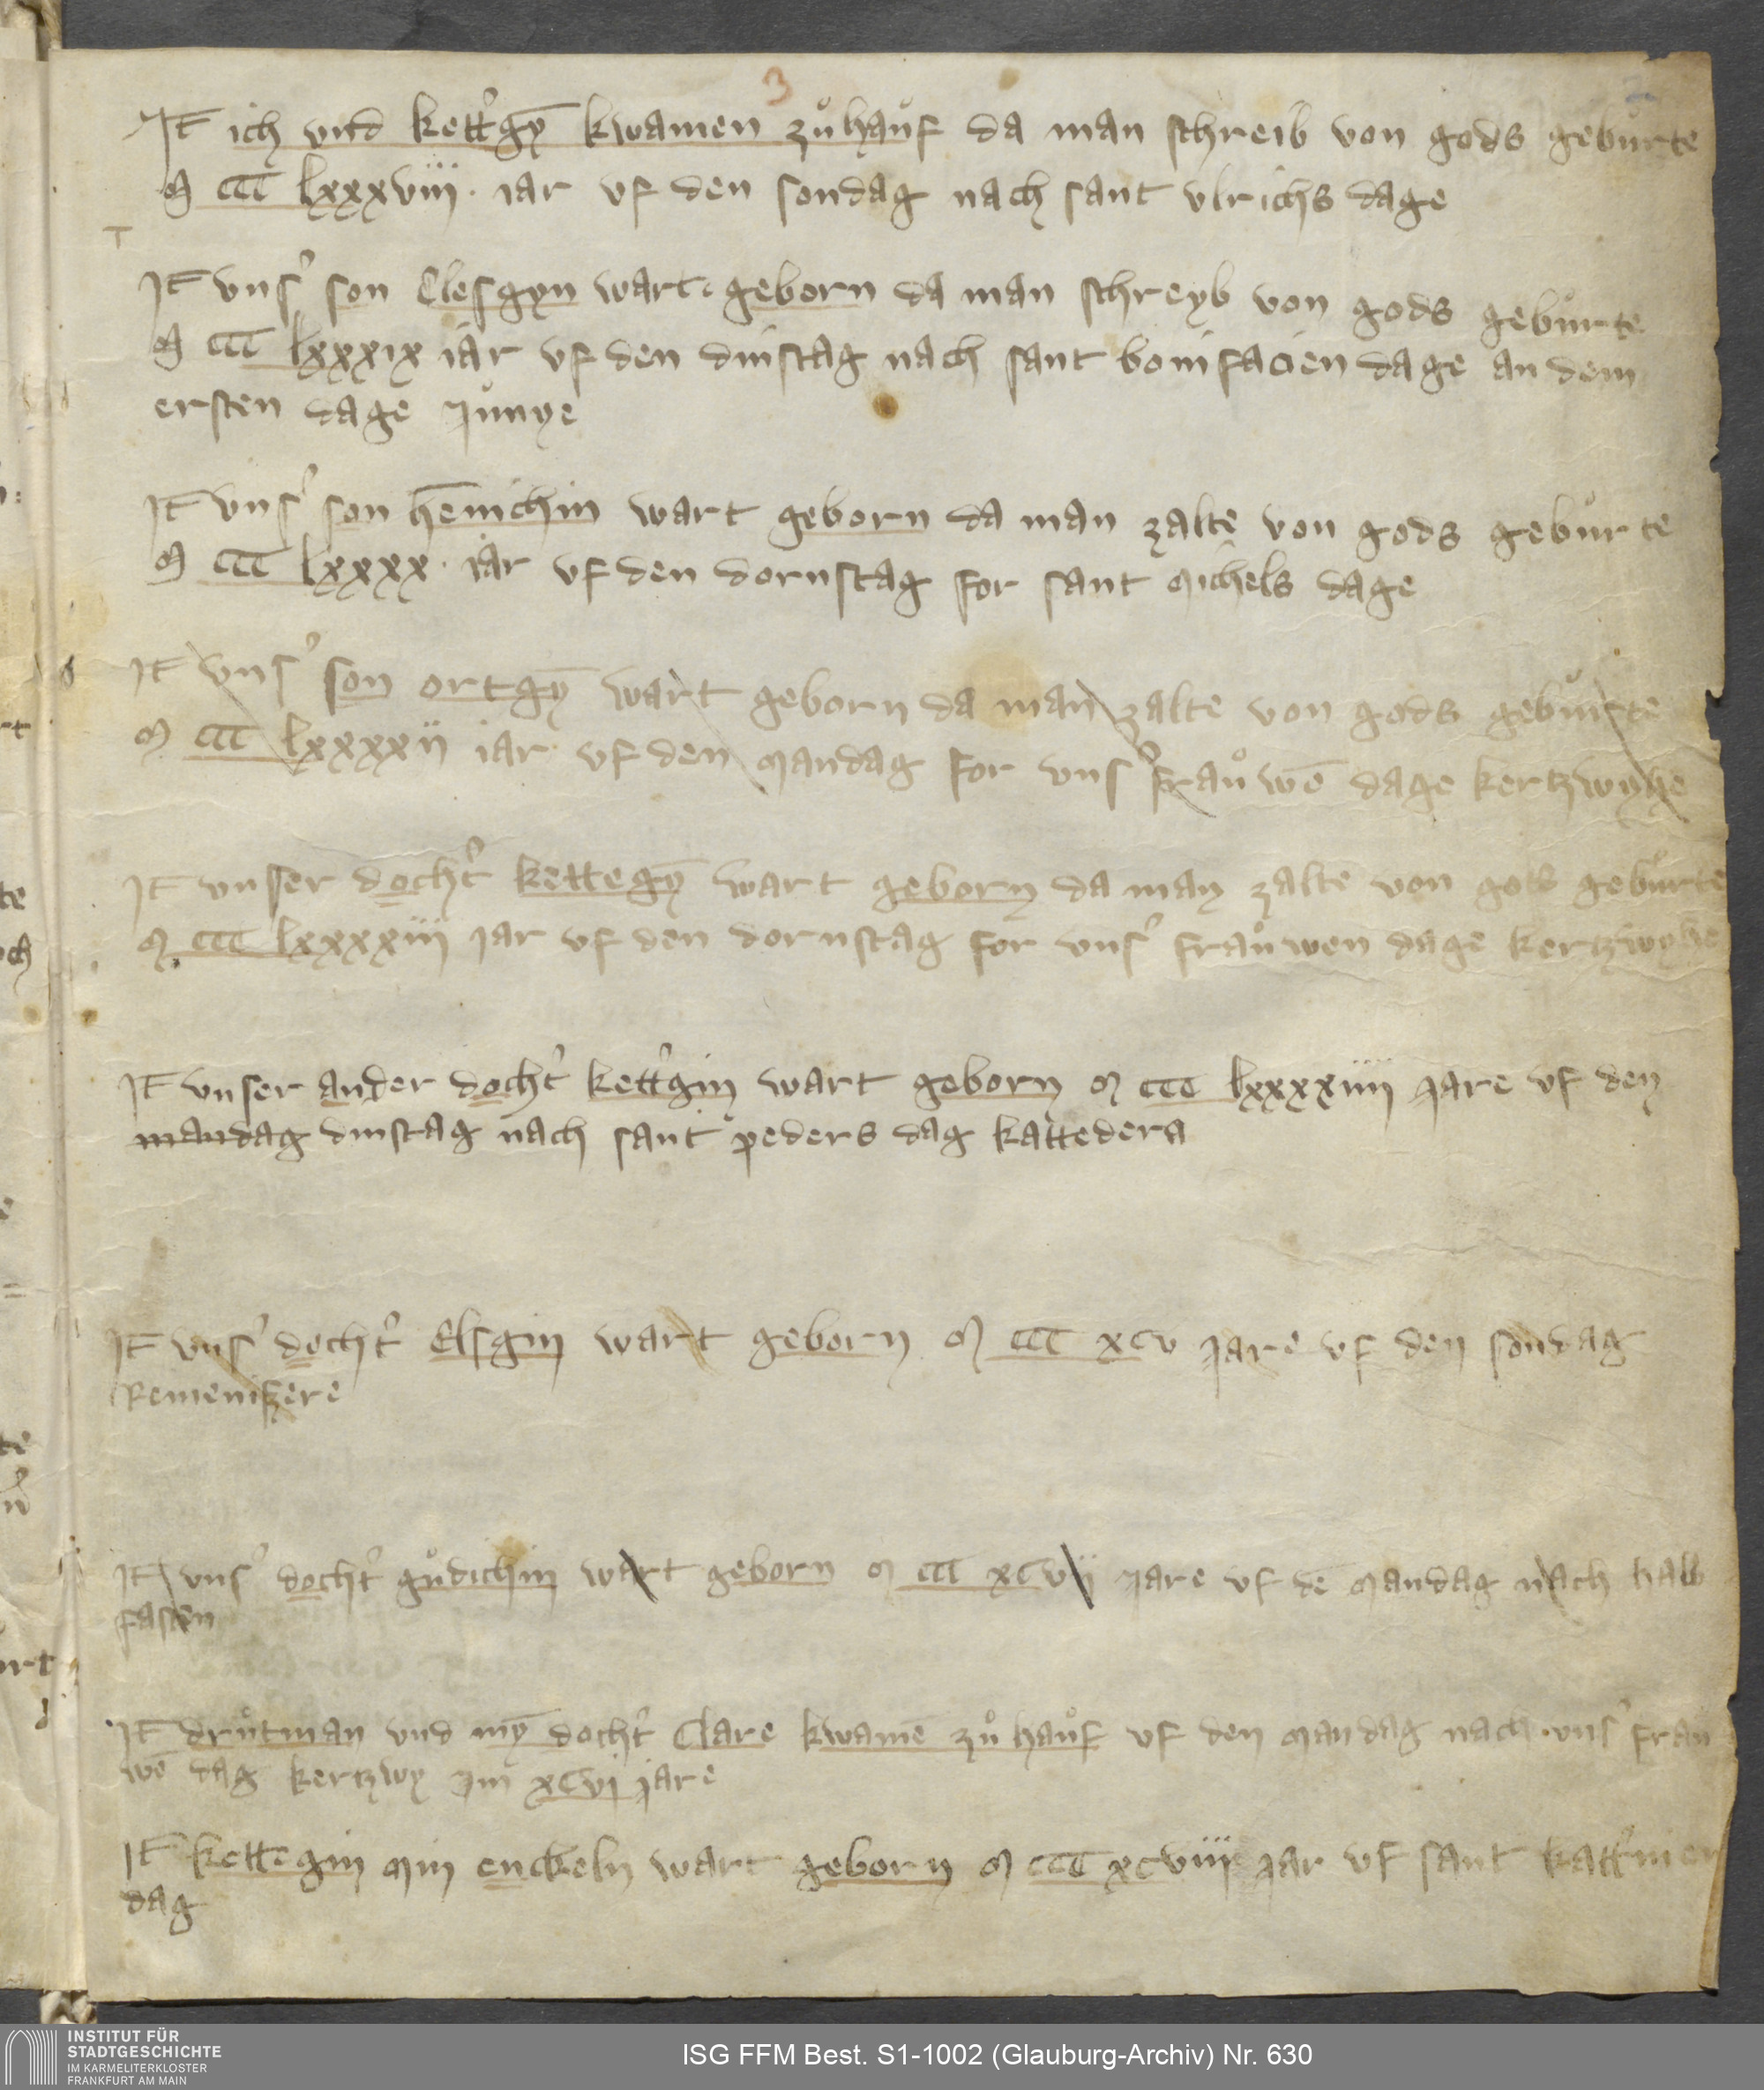 3
It ich vnd kett'gȳ kwamen zuͦhauͦf da man schreib von gods gebuͦrte
M ccc lxxxviii · iar vf den sondag nach sant vlrichs dage
It vns' son Clesgyn wart geborn da man schreyb von gods gebuͦrte
M ccc lxxxix iar vf den dinstag nach sant bonifacien dage an dem
ersten dage Juͦnye
It vns' son hēnichin wart geborn da man zalte von gods gebuͦrte
M ccc lxxxx · iar vf den dornstag for sant Michels dage
It vns' son ortgȳ wart geborn da man zalte von gods gebuͦrte
M ccc lxxxxii iar vf den Mandag for vns' frauͦwē dage kertzwyhe
It vnser docht' kettegȳ wart geborn da man zalte von gots gebuͦrte
M ccc lxxxxiii Jar vf den dornstag for vns' frauͦwen dage kertzwyhe
It vnser ander docht' kett'gin wart geborn M ccc lxxxxiiii Jare vf den
mandag dinstag nach sant peders dag kattedera
It vns' docht' Elsgin wart geborn M ccc xcv Jare vf den sondag
Remeniszere
It vns' docht' guͦdichin wart geborn M ccc xcvii Jare vf dē Mandag nach halb
fasten
It druͦtman vnd mȳ docht' Clare kwamē zuͦ hauͦf vf den Mandag nach vns' frau
wē dag kertzwy Jm xcvi Jare
It kettegin Min enckeln wart geborn M ccc xcviii Jar vf sant katt'inen
dag
INSTITUT FÜR
STADTGESCHICHTE
IM KARMELITERKLOSTER
FRANKFURT AM MAIN
ISG FFM Best. S1-1002 (Glauburg-Archiv) Nr. 630